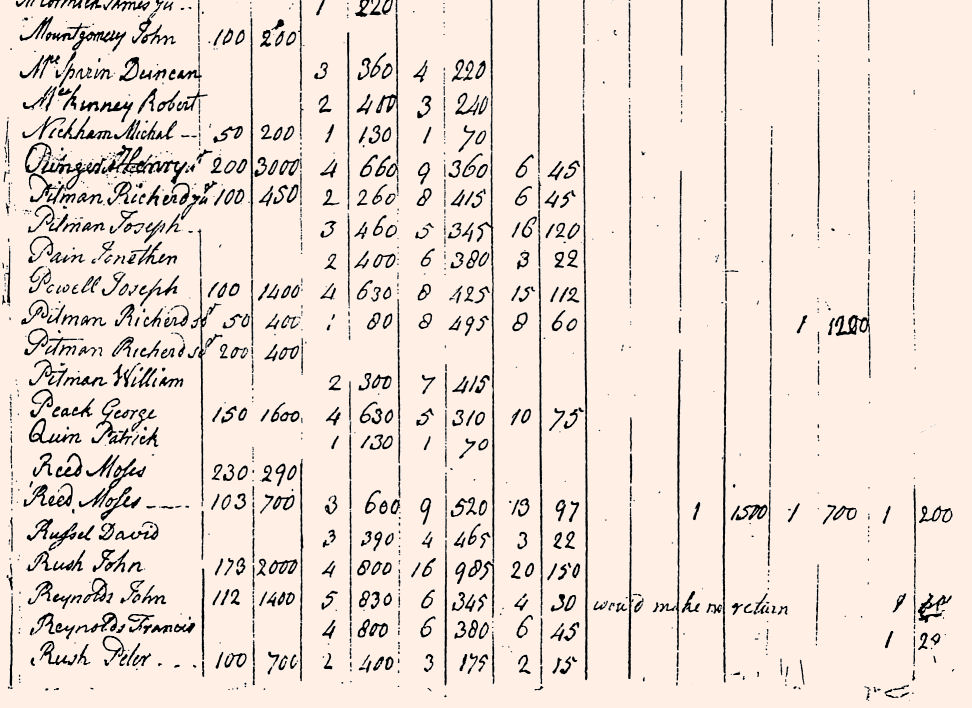 1 220
Mountgomery John 100 200
Mcspirin Duncan 3 360 4 220
Mckinney Robert 2 400 3 240
Nickham Michal -- 50 200 1 130 1 70
Henry 200 3000 4 660 9 360 6 45
Pitman Richerd jur 100 450 2 260 8 415 6 45
Pitman Joseph . 3 460 5 345 16 120
Pain Jonethen 2 400 6 380 3 22
Powell Joseph 100 1400 4 630 8 425 15 112
Pitman Richerd sr 50 400 1 80 8 495 8 60 1 1200
Pitman Richerd sr 200 400
Pitman William 2 300 7 415
Peack George 150 1600 4 630 5 310 10 75
Quin Patrick 1 130 1 70
Reed Moses 230 290
Reed Moses ---- 103 700 3 600 9 520 13 97 1 1500 1 700 1 200
Russel David 3 390 4 465 3 22
Rush John 173 2000 4 800 16 985 20 150
Reynolds John 112 1400 5 830 6 345 4 30 would make no return
Reynolds Francis 4 800 6 380 6 45 1
Rush Peter ... 100 700 2 400 3 175 2 15